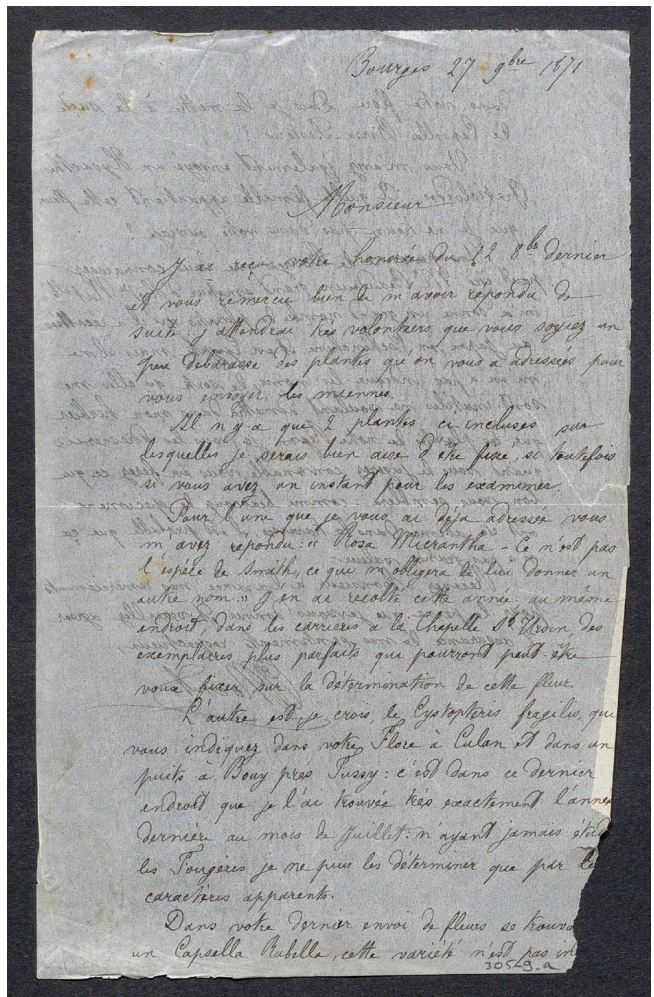 Bourges 27 9bre 1871
Monsieur
J'ai reçu votre honorée du 12 8bre dernier
et vous remercie bien de m'avoir répondu de
suite, j'attendrai très volontiers que vous soyiez un
peu débarassé des plantes qu'on vous a adressées pour
vous envoyer les miennes.
Il n'y a que 2 plantes ci incluses sur
lesquelles je serais bien aise d'être fixé, si toutefois
si vous avez un instant pour les examiner.
Pour l'une que je vous ai déja adressée vous
m'avez répondu: " Rosa Micrantha - Ce n'est pas
l'espèce de Smith, ce qui m'obligera de lui donner un
autre nom " J'en ai récolté cette année au même
endroit, dans les carrières à la Chapelle St Ursin, des
exemplaires plus parfaits qui pourront peut être
vous fixer sur la détermination de cette fleur.
L'autre est, je crois, le Cystoptéris fragilis, que
vous indiquez dans votre Flore à Culan et dans un
puits à Bouy près Fussy: c'est dans ce dernier
endroit que je l'ai trouvée très exactement l'anné
dernière au mois de Juillet: n'ayant jamais étu
les Fougères je ne puis les déterminer que par le
caractères apparents.
Dans votre dernier envoi de fleurs se trouva
un Capsella Rubella, cette variété n'est pas in
3059.a